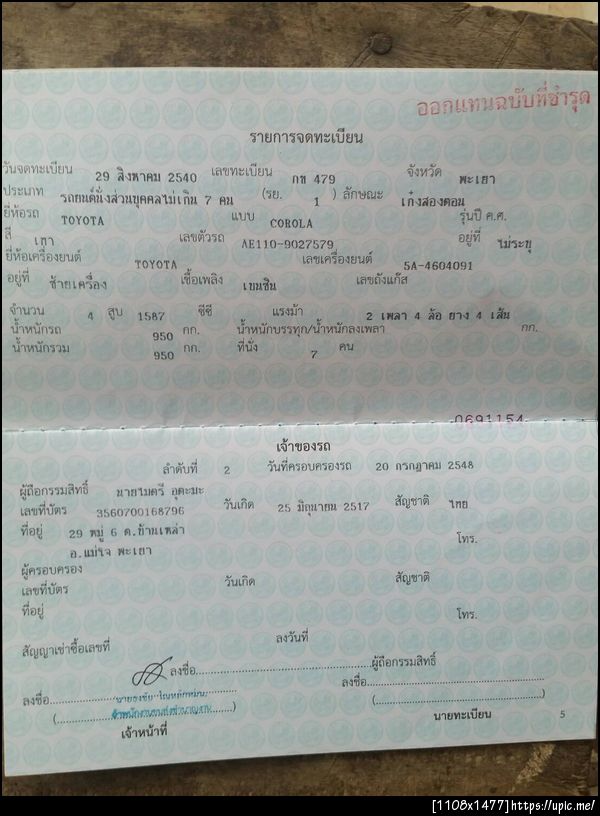 ออกแทนฉบับที่ชำรุด
รายการจดทะเบียน
วันจดทะเบียน 29 สิงหาคม 2540 เลขทะเบียน กข 479 จังหวัด พะเยา
ประเภท รถยนต์นั่งส่วนบุคคลไม่เกิน 7 คน (รย. 1 ) ลักษณะ เก๋งสองตอน
ยี่ห้อรถ TOYOTA แบบ COROLA รุ่นปี ค.ศ.
สี เทา เลขตัวรถ AE110-9027579 อยู่ที่ ไม่ระบุ
ยี่ห้อเครื่องยนต์ TOYOTA เลขเครื่องยนต์ 5A-4604091
อยู่ที่ ซ้ายเครื่อง เชื้อเพลิง เบนซิน เลขถังแก๊ส
จำนวน 4 สูบ 1587 ซีซี แรงม้า 2 เพลา 4 ล้อ ยาง 4 เส้น
น้ำหนักรถ 950 กก. น้ำหนักบรรทุก/น้ำหนักลงเพลา กก.
น้ำหนักรวม 950 กก. ที่นั่ง 7 คน
0691154
เจ้าของรถ
ลำดับที่ 2 วันที่ครอบครองรถ 20 กรกฎาคม 2548
ผู้ถือกรรมสิทธิ์ นายไมตรี อุตะมะ
เลขที่บัตร 3560700168796 วันเกิด 25 มิถุนายน 2517 สัญชาติ ไทย
ที่อยู่ 29 หมู่ 6 ต.บ้านเหล่า โทร.
อ.แม่ใจ พะเยา
ผู้ครอบครอง
เลขที่บัตร วันเกิด สัญชาติ
ที่อยู่ โทร.
สัญญาเช่าซื้อเลขที่ ลงวันที่
ลงชื่อ ผู้ถือกรรมสิทธิ์
ลงชื่อ ลงชื่อ
เจ้าพนักงานขนส่งชำนาญงาน
เจ้าหน้าที่ นายทะเบียน 5
[1108x1477]https://upic.me/